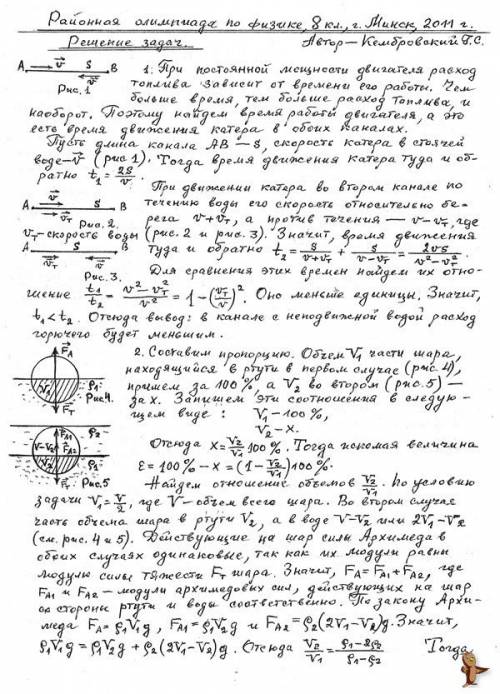 Районная олимпиада по физике, 8 кл., г. Минск, 2011 г.
Решение задач. Автор – Кембровский Г.С.
A v⃗ S B
v⃗
Рис. 1
1. При постоянной мощности двигателя расход
топлива зависит от времени его работы. Чем
больше время, тем больше расход топлива, и
наоборот. Поэтому найдем время работы двигателя, а это
есть время движения катера в обоих каналах.
Пусть длина канала AB – S, скорость катера в стоячей
воде – v⃗ (рис 1). Тогда время движения катера туда и об-
ратно t₁ = 2S/v.
A v⃗ S B
v⃗т Рис. 2.
При движении катера во втором канале по
течению воды его скорость относительно бе-
рега v+vт, а против течения — v-vт, где
vт - скорость воды (рис. 2 и рис. 3). Значит, время движения
A S v⃗ B
v⃗т
Рис. 3.
туда и обратно t₂ = S/(v+vт) + S/(v-vт) = 2vS/(v²-vт²).
Для сравнения этих времен найдем их отно-
шение t₁/t₂ = (v²-vт²)/v² = 1-(vт/v)². Оно меньше единицы. Значит,
t₁ < t₂. Отсюда вывод: в канале с неподвижной водой расход
горючего будет меньшим.
F⃗A
V₁ ρ₁
Рис 4.
F⃗т
2. Составим пропорцию. Объем V₁ части шара,
находящийся в ртути в первом случае (рис. 4),
примем за 100%, а V₂ во втором (рис. 5) —
за x. Запишем эти соотношения в следую-
щем виде: V₁ - 100%,
V₂ - x.
F⃗A1 ρ₂
V-V₂ F⃗A2
V₂ ρ₁
F⃗т Рис. 5
Отсюда x = V₂/V₁ 100%. Тогда искомая величина
ε = 100% - x = (1 - V₂/V₁)100%.
Найдем отношение объемов V₂/V₁. По условию
задачи V₁ = V/2, где V - объем всего шара. Во втором случае
часть объема шара в ртути V₂, а в воде V-V₂ или 2V₁-V₂
(см. рис. 4 и 5). Действующие на шар силы Архимеда в
обоих случаях одинаковые, так как их модули равны
модулю силы тяжести Fт шара. Значит, FA = FA1 + FA2, где
FA1 и FA2 - модули архимедовых сил, действующих на шар
со стороны ртути и воды соответственно. По закону Архи-
меда FA = ρ₁V₁g, FA1 = ρ₁V₂g и FA2 = ρ₂(2V₁-V₂)g. Значит,
ρ₁V₁g = ρ₁V₂g + ρ₂(2V₁-V₂)g. Отсюда V₂/V₁ = (ρ₁-2ρ₂)/(ρ₁-ρ₂) Тогда